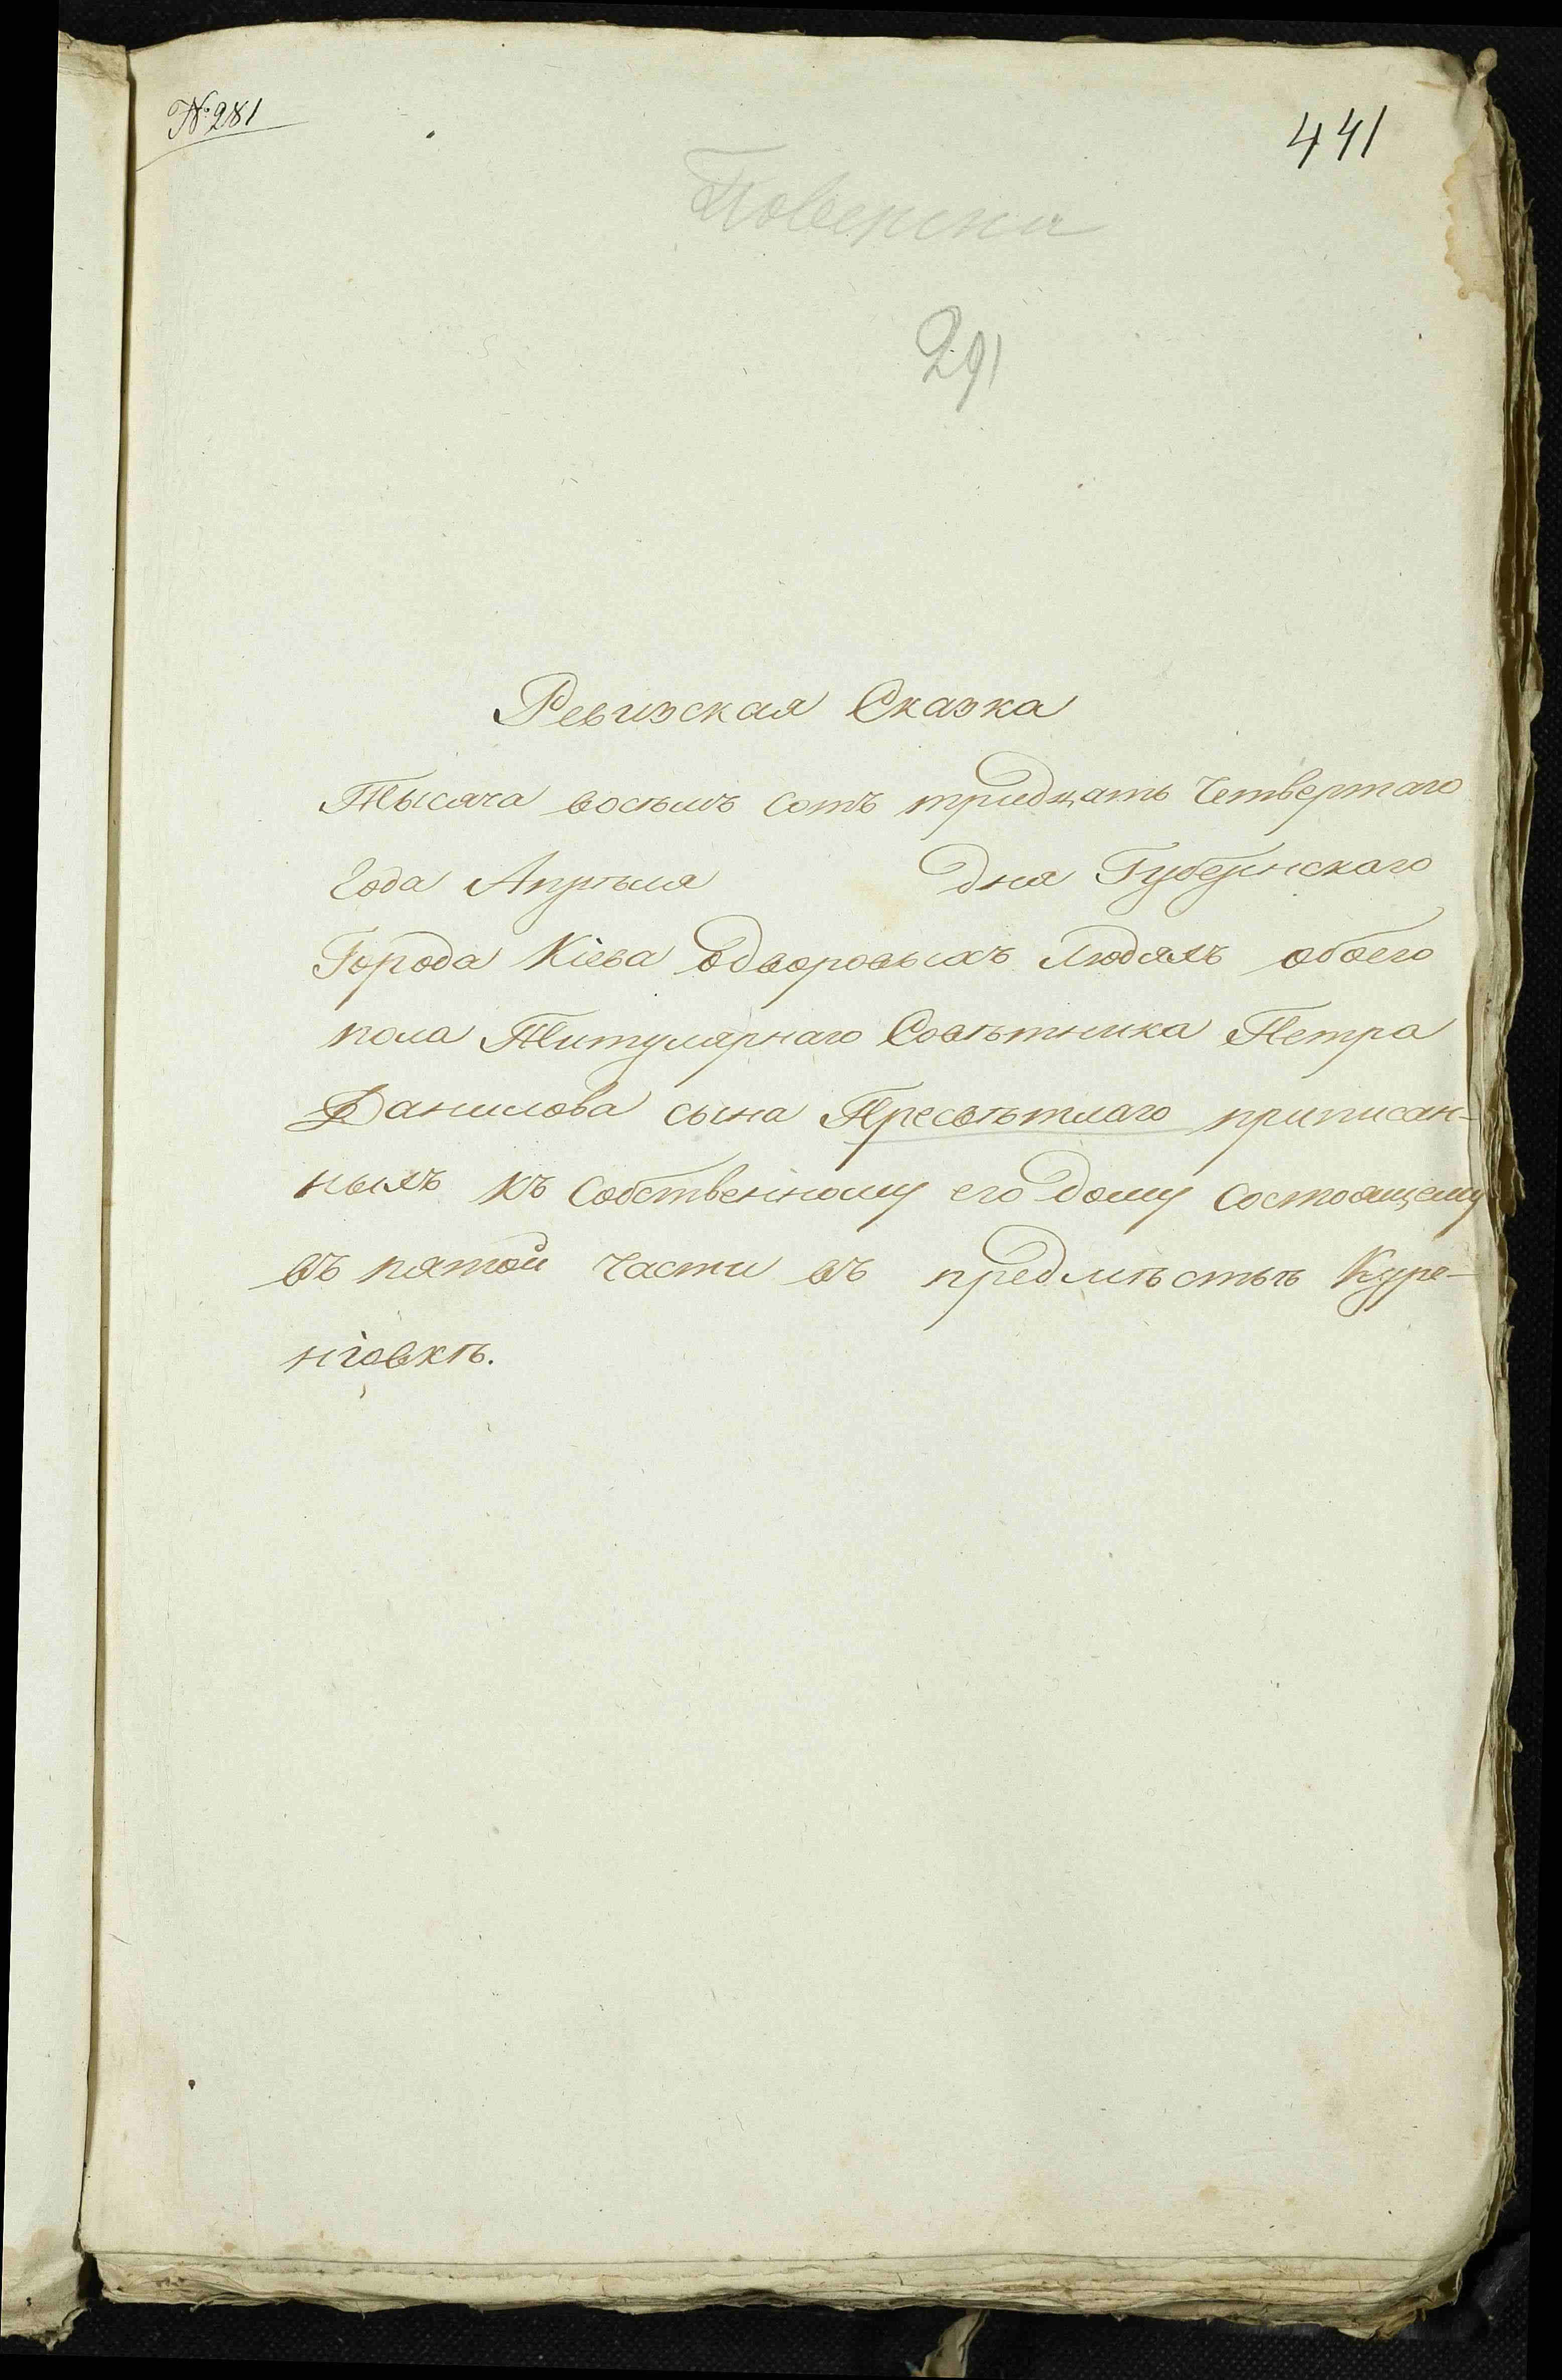 № 281
441
Поверена
291
Ревизская Сказка
Тысяча восемь сотъ тридцать Четвертаго
Года Апреля дня Губернскаго
Города Кіева одворовыхъ Людяхъ обоего
пола Титулярнаго Совѣтника Петра
Данилова сына Пресвѣтлаго приписан-
ныхъ къ Собственному его дому состоящему
въ пятой Части въ предмѣстьѣ Куре-
нiовкѣ.